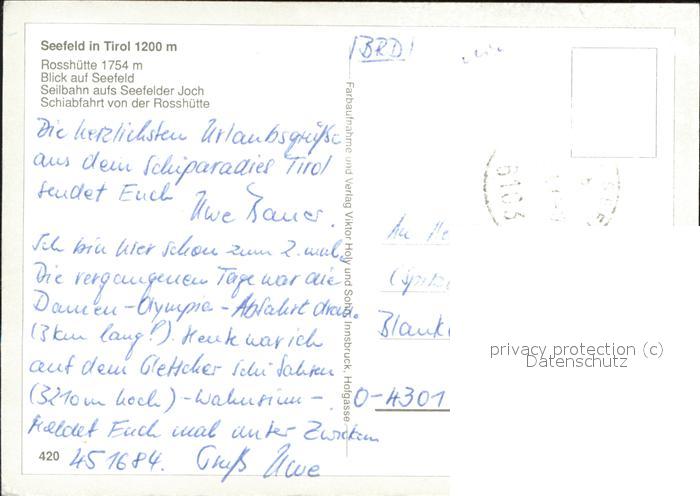 Seefeld in Tirol 1200 m
Rosshütte 1754 m
Blick auf Seefeld
Seilbahn aufs Seefelder Joch
Schiabfahrt von der Rosshütte
Die herzlichsten Urlaubsgrüße
aus dem Schiparadies Tirol
sendet Euch
Uwe Bauer.
Ich bin hier schon zum 2. mal.
Die vergangenen Tage war die
Damen-Olympia-Abfahrt dran.
(3km lang!). Heute war ich
auf dem Gletscher Schi fahren
(3210m hoch) - Wahnsinn -.
Meldet Euch mal unter Zwickau
451684. Gruß Uwe
420
Farbaufnahme und Verlag Viktor Holy und Sohn, Innsbruck, Hofgasse
(BRD)
An
Blank
O-4301
privacy protection (c)
Datenschutz